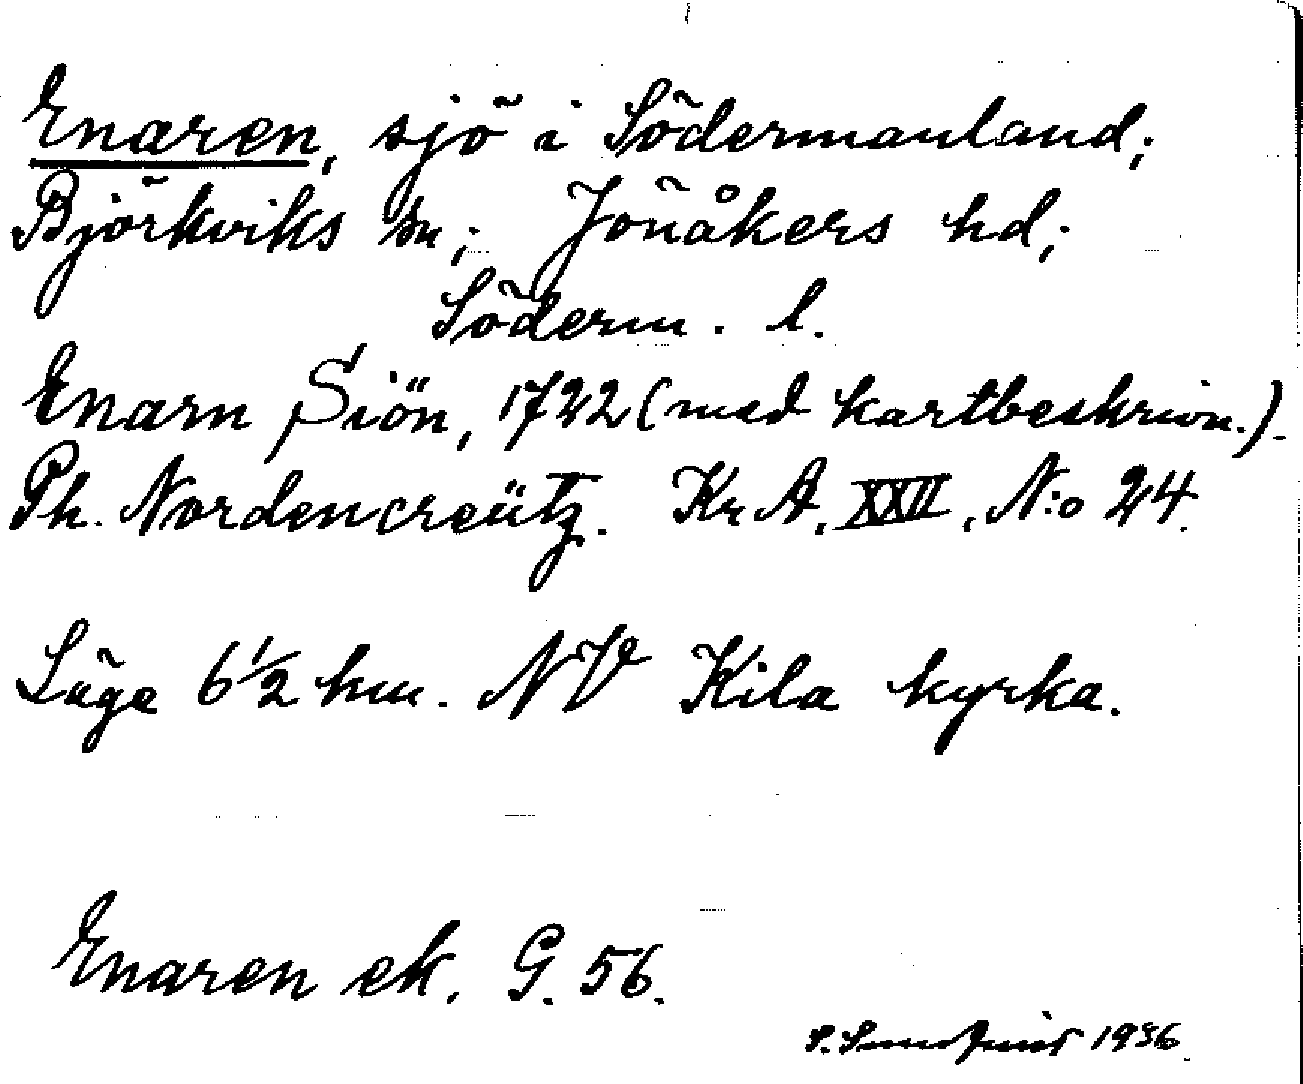 Enaren, sjö i Södermanland;
Björkviks sn; Jönåkers hd;
Söderm. l.
Enarn Siön, 1722 (med kartbeskrivn.).
Ph. Nordencreütz. Kr A. XXII, N:o 24.
Läge 6 1/2 km. NV Kila kyrka.
Enaren ek. G. 56.
S. Sundqvist 1936.